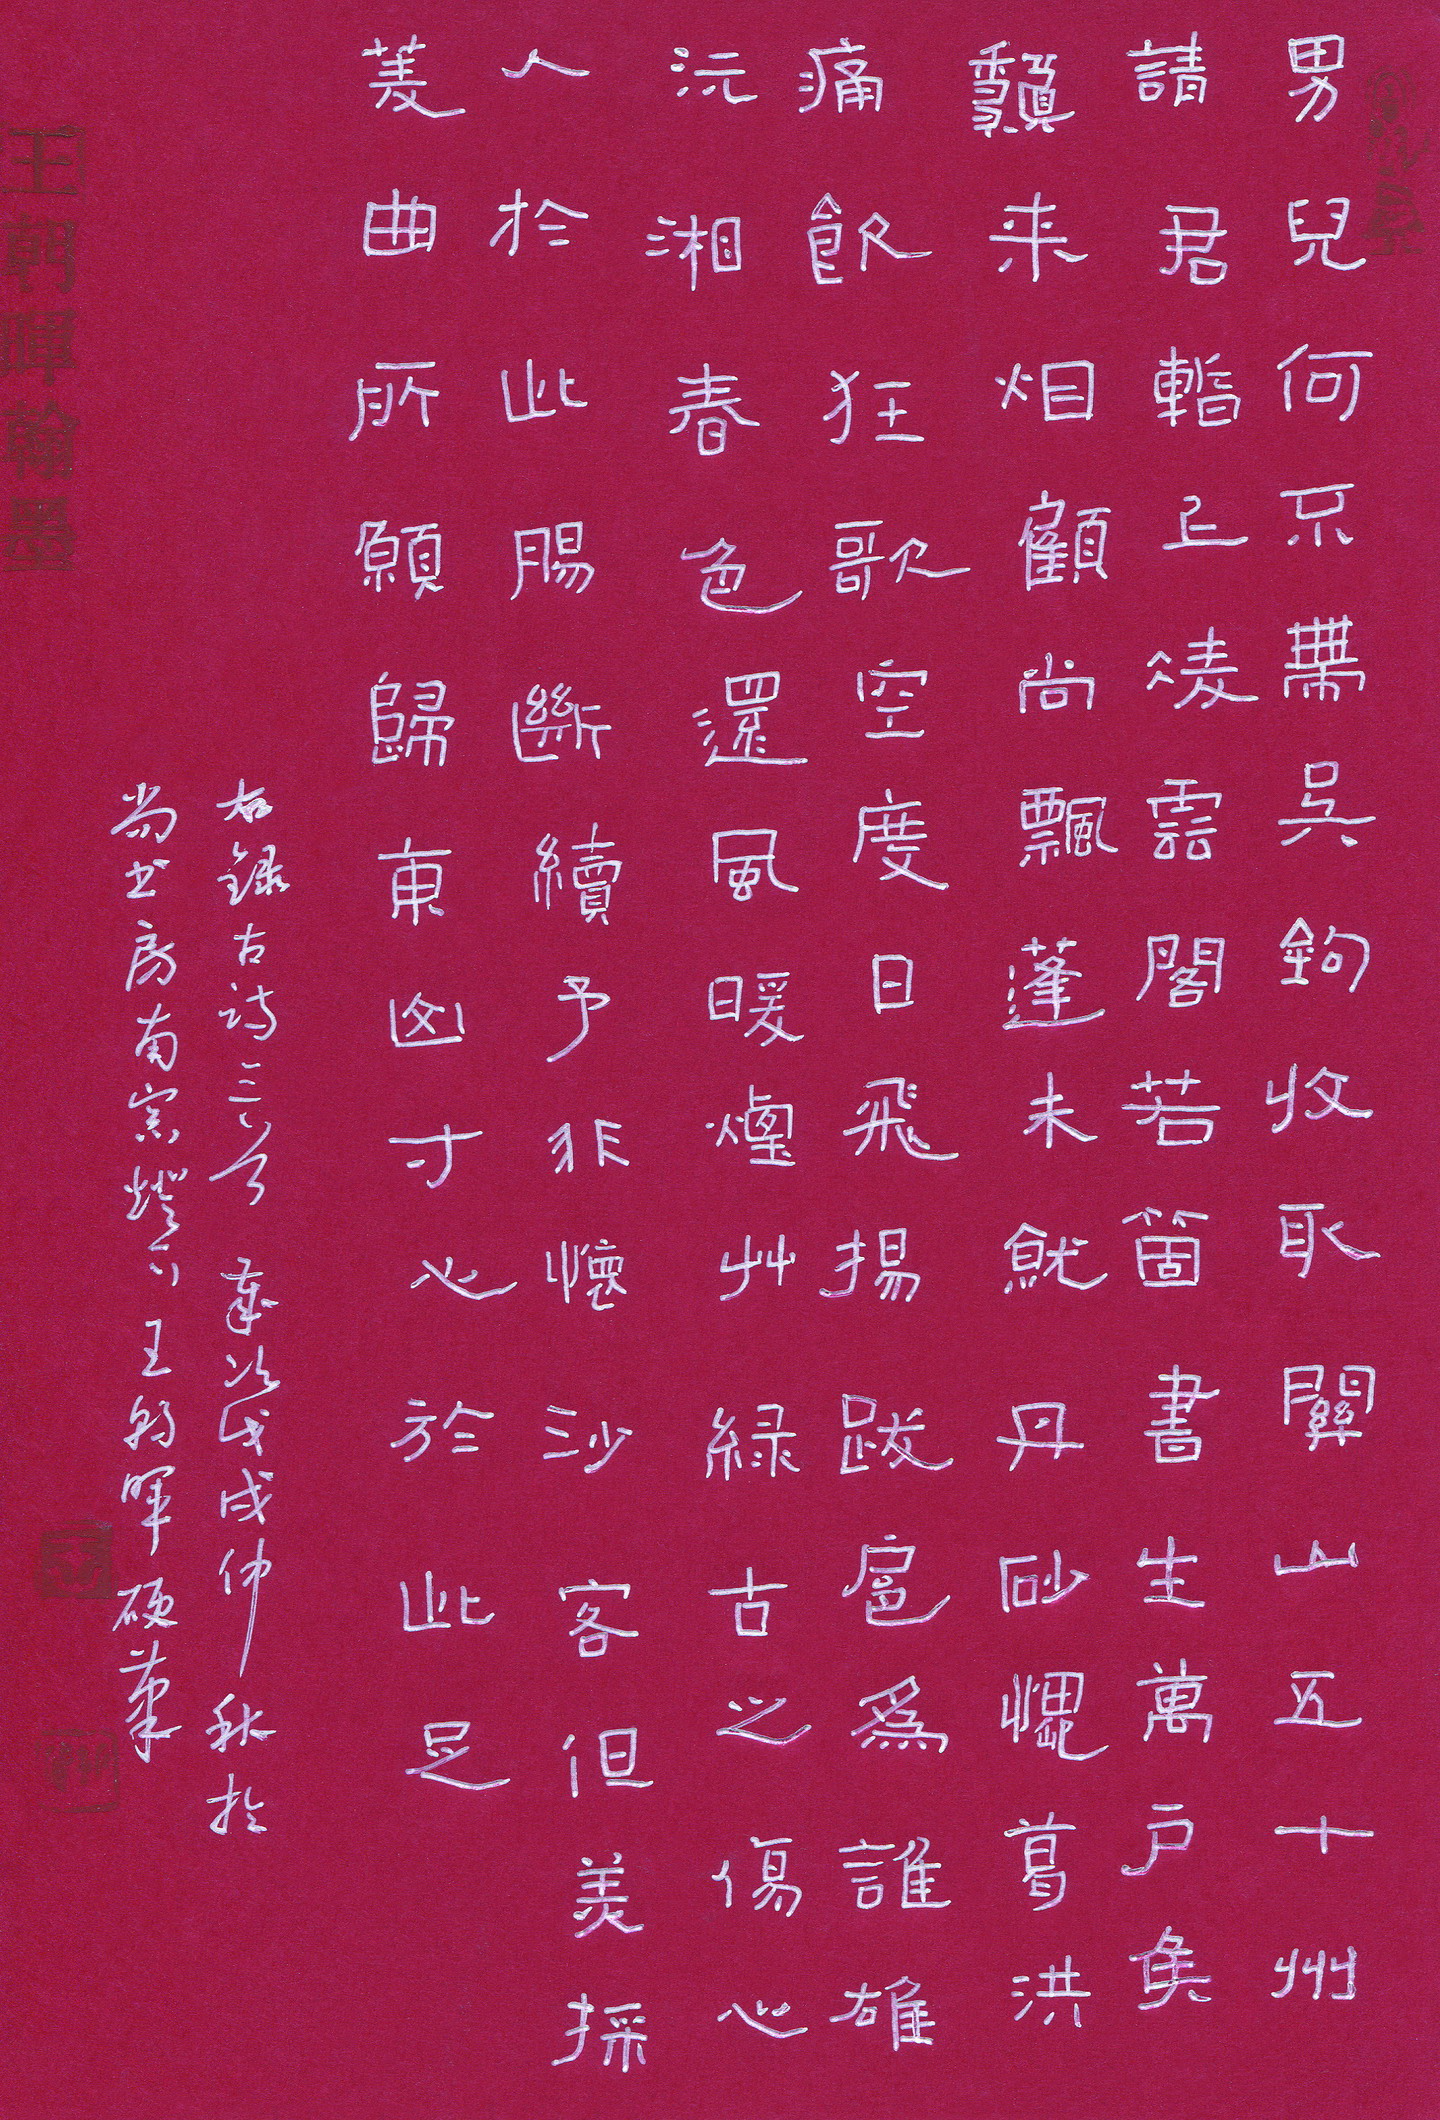 男兒何不帶吳鉤收取關山五十州
請君暫上凌雲閣若箇書生萬戶侯
龝来相顧尚飄蓬未就丹砂愧葛洪
痛飲狂歌空度日飛揚跋扈為誰雄
沅湘春色還風暖煙艸緑古之傷心
人於此腸斷續予非懷沙客但美採
菱曲所願歸東西寸心於此足
右錄古詩三首 歲次戊戌仲秋於
尚书房南窗燈下王朝暉硬筆
王朝暉翰墨